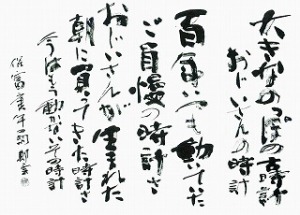 大きなのっぽの古時計
おじいさんの時計
百年いつも動いていた
ご自慢の時計さ
おじいさんが生まれた
朝に買ってきた時計さ
今はもう動かないその時計